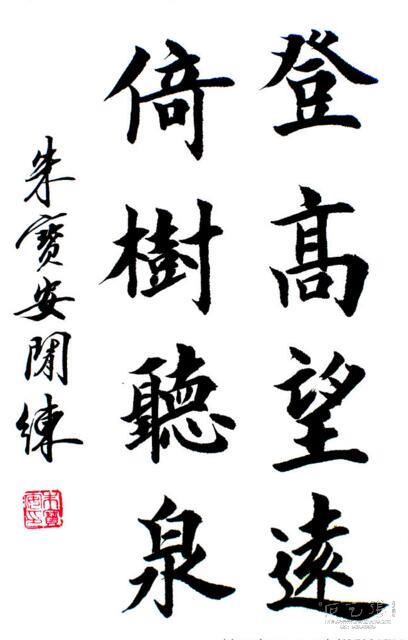 登髙望逺
倚樹聽泉
朱寶安閒練